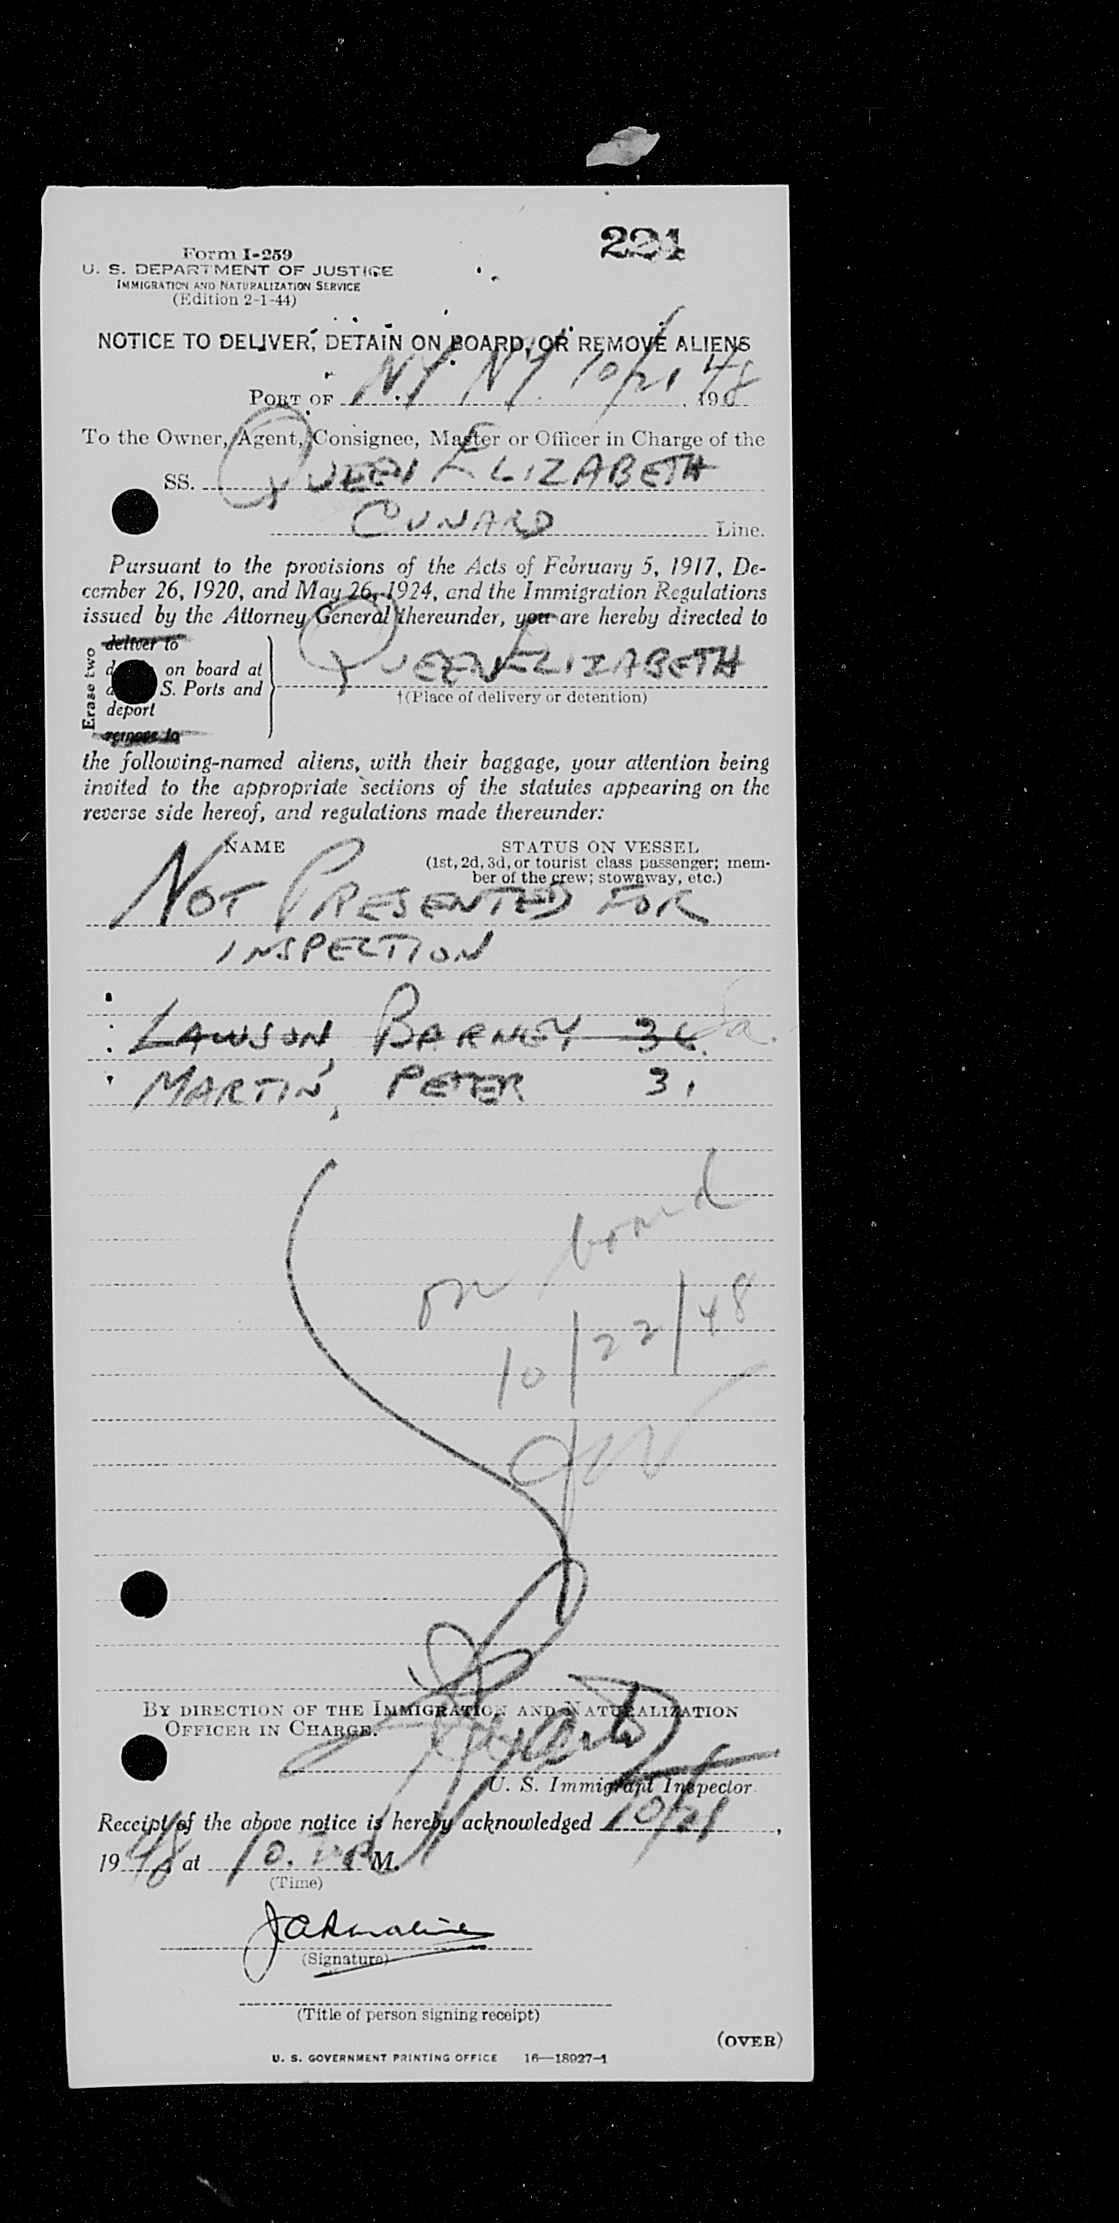 Form I-259
U. S. DEPARTMENT OF JUSTICE
IMMIGRATION AND NATURALIZATION SERVICE
(Edition 2-1-44)
221
NOTICE TO DELIVER, DETAIN ON BOARD, OR REMOVE ALIENS
PORT OF N.Y. N.Y. 10/21 1948
To the Owner, Agent, Consignee, Master or Officer in Charge of the
SS. QUEEN ELIZABETH
CUNARD Line.
Pursuant to the provisions of the Acts of February 5, 1917, De-
cember 26, 1920, and May 26, 1924, and the Immigration Regulations
issued by the Attorney General thereunder, you are hereby directed to
Erase two
deliver to
on board at
S. Ports and
deport
remove to
QUEEN ELIZABETH
†(Place of delivery or detention)
the following-named aliens, with their baggage, your attention being
invited to the appropriate sections of the statutes appearing on the
reverse side hereof, and regulations made thereunder:
NAME
STATUS ON VESSEL
(1st, 2d, 3d, or tourist class passenger; mem-
ber of the crew; stowaway, etc.)
NOT PRESENTED FOR
INSPECTION
LAWSON, BARNEY 36
MARTIN, PETER 31
on board
10/22/48
BY DIRECTION OF THE IMMIGRATION AND NATURALIZATION
OFFICER IN CHARGE.
U. S. Immigrant Inspector.
Receipt of the above notice is hereby acknowledged 10/21,
1948 at 10. M.
(Time)
(Signature)
(Title of person signing receipt)
(OVER)
U. S. GOVERNMENT PRINTING OFFICE 16—18927-1